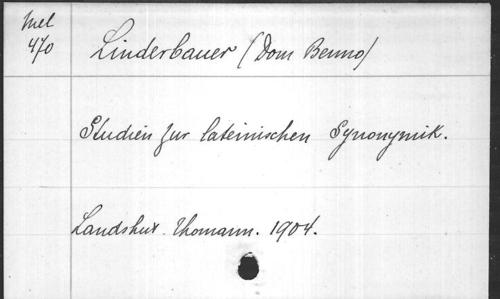 Mel
470
Linderbauer (Dom Benno)
Studien zur lateinischen Synonymik.
Landshut. Thomann. 1904.